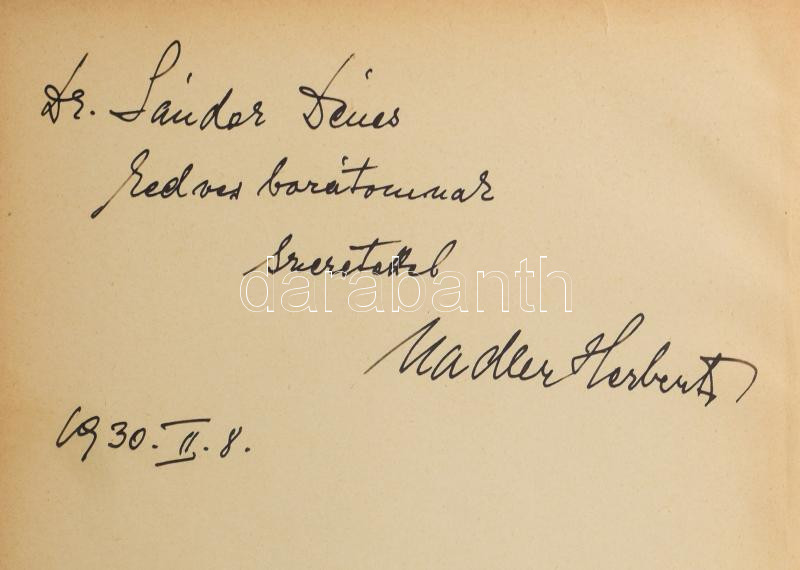 Dr. Sándor Dénes
kedves barátomnak
szeretettel
darabanth
Nadler Herbert
1930. II. 8.